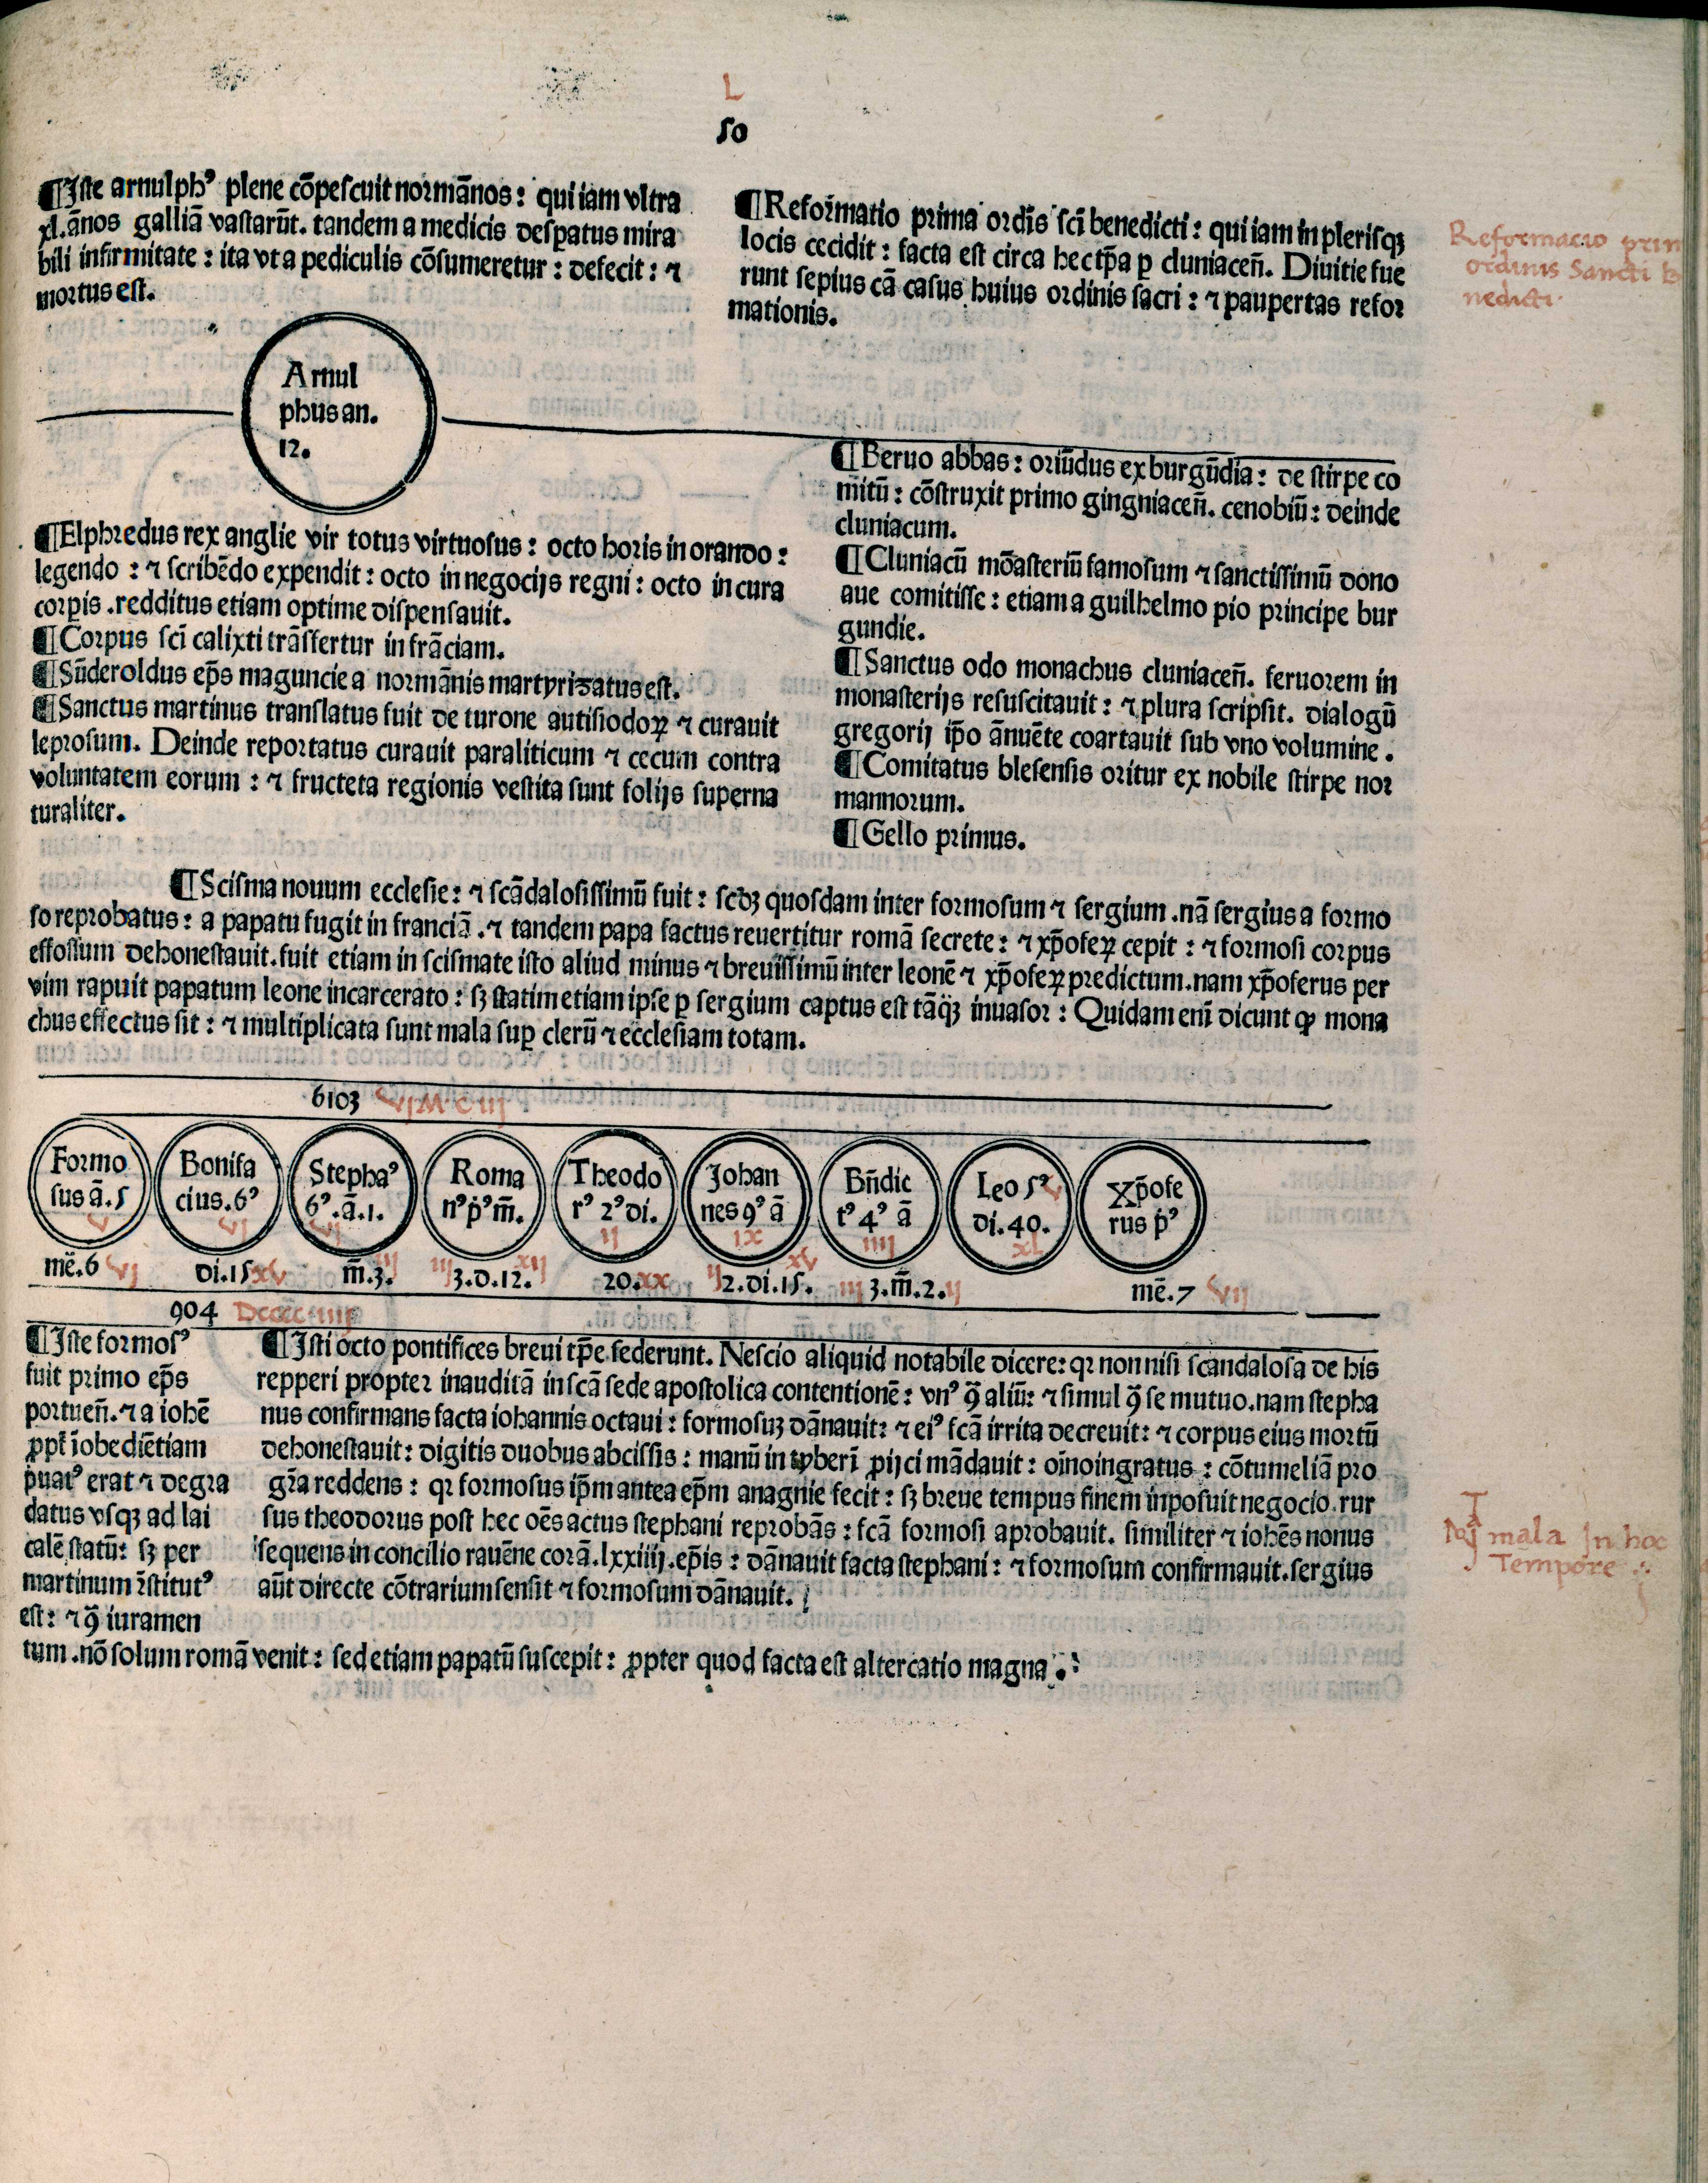 L
50
¶Iste arnulphꝰ plene cõpescuit normãnos: qui iam vltra
xl.ãnos galliã vastarũt. tandem a medicis desꝑatus mira
bili infirmitate: ita vt a pediculis cõsumeretur: defecit: ⁊
mortus est.
¶Reformatio prima ordĩs scĩ benedicti: qui iam in plerisqꝫ
locis cecidit: facta est circa hec tp̃a ꝑ cluniaceñ. Diuitie fue
runt sepius cã casus huius ordinis sacri: ⁊ paupertas refor
mationis.
Reformacio prim
ordinis Sancti b
nedicti
Arnul
phus an.
12.
¶Beruo abbas: oriũdus ex burgũdia: de stirpe co
mitũ: cõstruxit primo gingniaceñ. cenobiũ: deinde
cluniacum.
¶Cluniacũ mõasteriũ famosum ⁊ sanctissimũ dono
aue comitisse: etiam a guilhelmo pio principe bur
gundie.
¶Sanctus odo monachus cluniaceñ. feruorem in
monasterijs resuscitauit: ⁊ plura scripsit. dialogũ
gregorij ip̃o ãnuẽte coartauit sub vno volumine.
¶Comitatus blesensis oritur ex nobile stirpe nor
mannorum.
¶Gello primus.
¶Elphredus rex anglie vir totus virtuosus: octo horis in orando:
legendo: ⁊ scribẽdo expendit: octo in negocijs regni: octo in cura
corꝑis.redditus etiam optime dispensauit.
¶Corpus scĩ calixti trãsfertur in frãciam.
¶Sũderoldus ep̃s maguncie a normãnis martyrizatus est.
¶Sanctus martinus translatus fuit de turone autisiodoꝝ ⁊ curauit
leprosum. Deinde reportatus curauit paraliticum ⁊ cecum contra
voluntatem eorum: ⁊ fructeta regionis vestita sunt folijs superna
turaliter.
¶Scisma nouum ecclesie: ⁊ scãdalosissimũ fuit: scd̃ꝫ quosdam inter formosum ⁊ sergium.nã sergius a formo
so reprobatus: a papatu fugit in franciã.⁊ tandem papa factus reuertitur romã secrete: ⁊ xp̃ofeꝝ cepit: ⁊ formosi corpus
effossum dehonestauit.fuit etiam in scismate isto aliud minus ⁊ breuissimũ inter leonẽ ⁊ xp̃ofeꝝ predictum.nam xp̃oferus per
vim rapuit papatum leone incarcerato: sꝫ statim etiam ipse ꝑ sergium captus est tãq̃ꝫ inuasor: Quidam enĩ dicunt ꝙ mona
chus effectus sit: ⁊ multiplicata sunt mala suꝑ clerũ ⁊ ecclesiam totam.
6103 VI M C III
Formo
sus ã.5
V
mẽ.6 VI
Bonifa
cius.6ꝰ
VI
di.15 XV
Stephaꝰ
6ꝰ.ã.1.
VI
m̃.3. III
Roma
nꝰ p̊ꝰ m̃.
III 3.d.12. XII
Theodo
rꝰ 2ꝰ di.
II
20. XX
Johan
nes 9ꝰ ã
IX
II 2.di.15. XV
Bñdic
tꝰ 4ꝰ ã
IIII
III 3.m̃.2. II
Leo 5ꝰ V
di.40.
XL
Xp̃ofe
rus p̊ꝰ
mẽ.7 VII
904 Dcccc iiij
¶Iste formosꝰ
fuit primo ep̃s
portueñ.⁊ a iohẽ
ꝓpt̃ ĩobediẽtiam
p̊uatꝰ erat ⁊ degra
datus vsqꝫ ad lai
calẽ statũ: sꝫ per
martinum ĩstitutꝰ
est: ⁊ ꝯ̃ iuramen
tum.nõ solum romã venit: sed etiam papatũ suscepit: ꝓpter quod facta est altercatio magna.
¶Isti octo pontifices breui tp̃e sederunt. Nescio aliquid notabile dicere: qꝛ non nisi scandalosa de his
repperi propter inauditã in scã sede apostolica contentionẽ: vnꝰ ꝯ̃ aliũ: ⁊ simul ꝯ̃ se mutuo.nam stepha
nus confirmans facta iohannis octaui: formosuꝫ dãnauit: ⁊ eiꝰ fcã irrita decreuit: ⁊ corpus eius mortũ
dehonestauit: digitis duobus abcissis: manũ in tyberĩ ꝓijci mãdauit: oĩno ingratus: cõtumeliã pro
gr̃a reddens: qꝛ formosus ip̃m antea ep̃m anagnie fecit: sꝫ breue tempus finem inposuit negocio.rur
sus theodorus post hec oẽs actus stephani reprobãs: fcã formosi aprobauit. similiter ⁊ iohẽs nonus
sequens in concilio rauẽne corã.lxxiiij.ep̃is: dãnauit facta stephani: ⁊ formosum confirmauit.sergius
aũt directe cõtrarium sensit ⁊ formosum dãnauit.
mala In hoc
Tempore